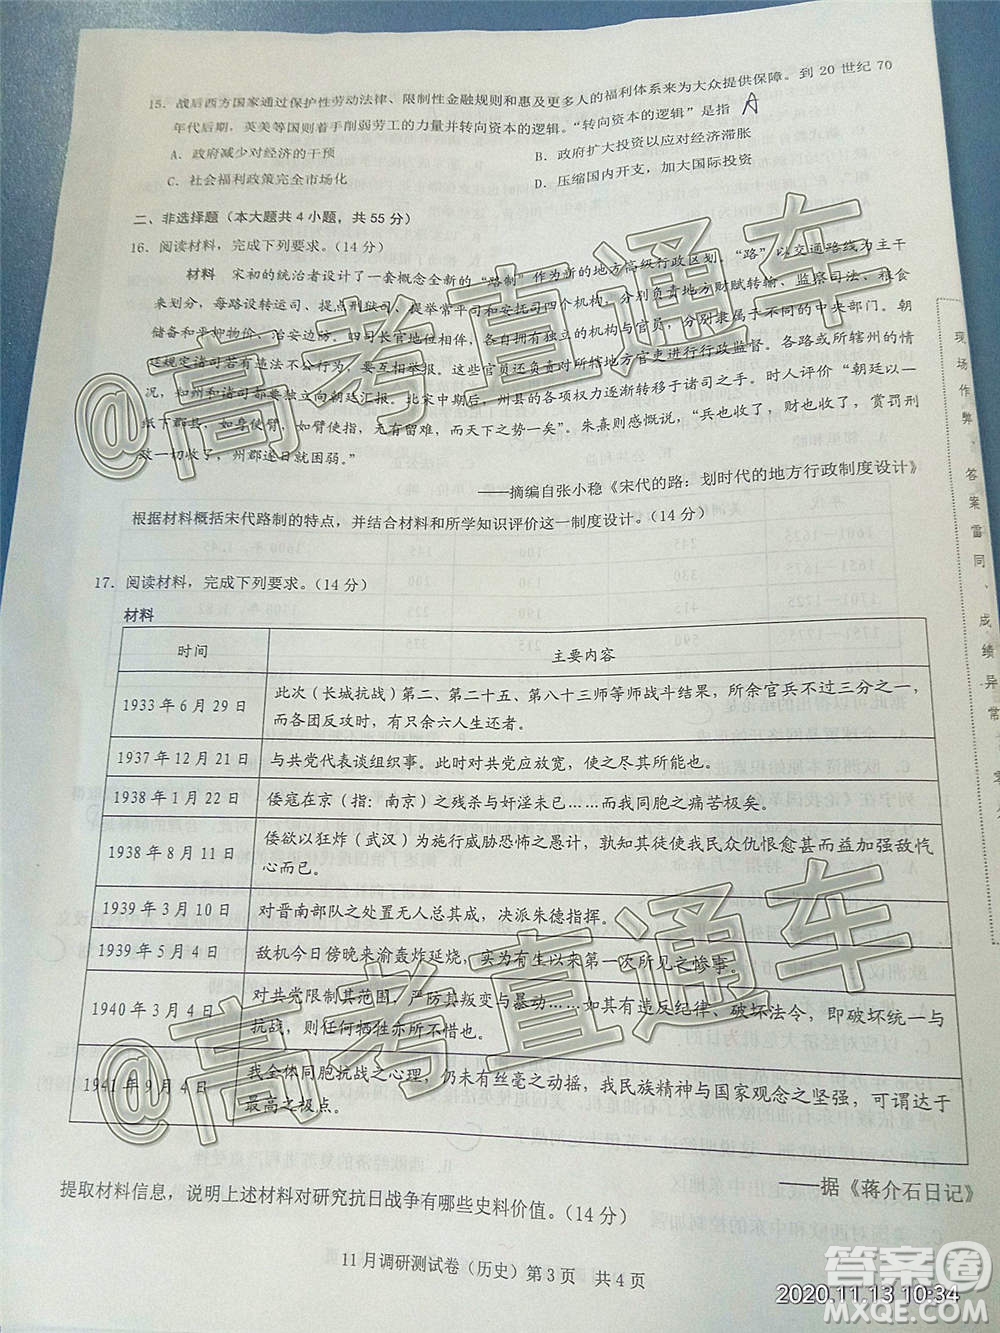 15. 战后西方国家通过保护性劳动法律、限制性金融规则和惠及更多人的福利体系来为大众提供保障。到 20 世纪 70
年代后期，英美等国则着手削弱劳工的力量并转向资本的逻辑。“转向资本的逻辑”是指 A
A. 政府减少对经济的干预
B. 政府扩大投资以应对经济滞胀
C. 社会福利政策完全市场化
D. 压缩国内开支，加大国际投资
二、非选择题（本大题共 4 小题，共 55 分）
16. 阅读材料，完成下列要求。（14 分）
材料 宋初的统治者设计了一套概念全新的“路制”作为新的地方高级行政区划。“路”以交通路线为主干
来划分，每路设转运司、提点刑狱司、提举常平司和安抚司四个机构，分别负责地方财赋转输、监察司法、粮食
储备和平抑物价、治安边防。四司长官地位相等，有独立的机构与官员，分别隶属于不同的中央部门。朝
廷规定诸司若有违法不公行为，要互相举报。这些官员还负责对所辖地方官吏进行行政监督。各路或所辖州的情
况，知州和诸司都要独立向朝廷汇报。北宋中期以后，州县的各项权力逐渐转移于诸司之手。时人评价“朝廷以一
纸下郡县，如身使臂，如臂使指，无有留难，而天下之势一矣”。朱熹则感慨说：“兵也收了，财也收了，赏罚刑
政一切收了，州郡遂日就困弱。”
——摘编自张小稳《宋代的路：划时代的地方行政制度设计》
根据材料概括宋代路制的特点，并结合材料和所学知识评价这一制度设计。（14 分）
17. 阅读材料，完成下列要求。（14 分）
材料
时间 主要内容
1933 年 6 月 29 日 此次（长城抗战）第二、第二十五、第八十三师等师战斗结果，所余官兵不过三分之一，
而各团反攻时，有只余六人生还者。
1937 年 12 月 21 日 与共党代表谈组织事。此时对共党应放宽，使之尽其所能也。
1938 年 1 月 22 日 倭寇在京（指：南京）之残杀与奸淫未已……而我同胞之痛苦极矣。
1938 年 8 月 11 日 倭欲以狂炸（武汉）为施行威胁恐怖之愚计，孰知其徒使我民众仇恨愈甚而益加强敌忾
心而已。
1939 年 3 月 10 日 对晋南部队之处置无人总其成，决派朱德指挥。
1939 年 5 月 4 日 敌机今日傍晚来渝轰炸延烧，实为有生以来第一次所见之惨事。
1940 年 3 月 4 日 对共党限制其范围，严防其叛变与暴动……如有违反纪律、破坏法令，即破坏统一与
抗战，则任何牺牲亦所不惜也。
1941 年 9 月 4 日 我全体同胞抗战之心理，仍未有丝毫之动摇，我民族精神与国家观念之坚强，可谓达于
最高之极点。
——据《蒋介石日记》
提取材料信息，说明上述材料对研究抗日战争有哪些史料价值。（14 分）
11 月调研测试卷（历史）第 3 页 共 4 页
现场作弊、答案雷同、成绩异常
@高考直通车
@高考直通车
答案圈
MXQE.COM
2020.11.13 10:34